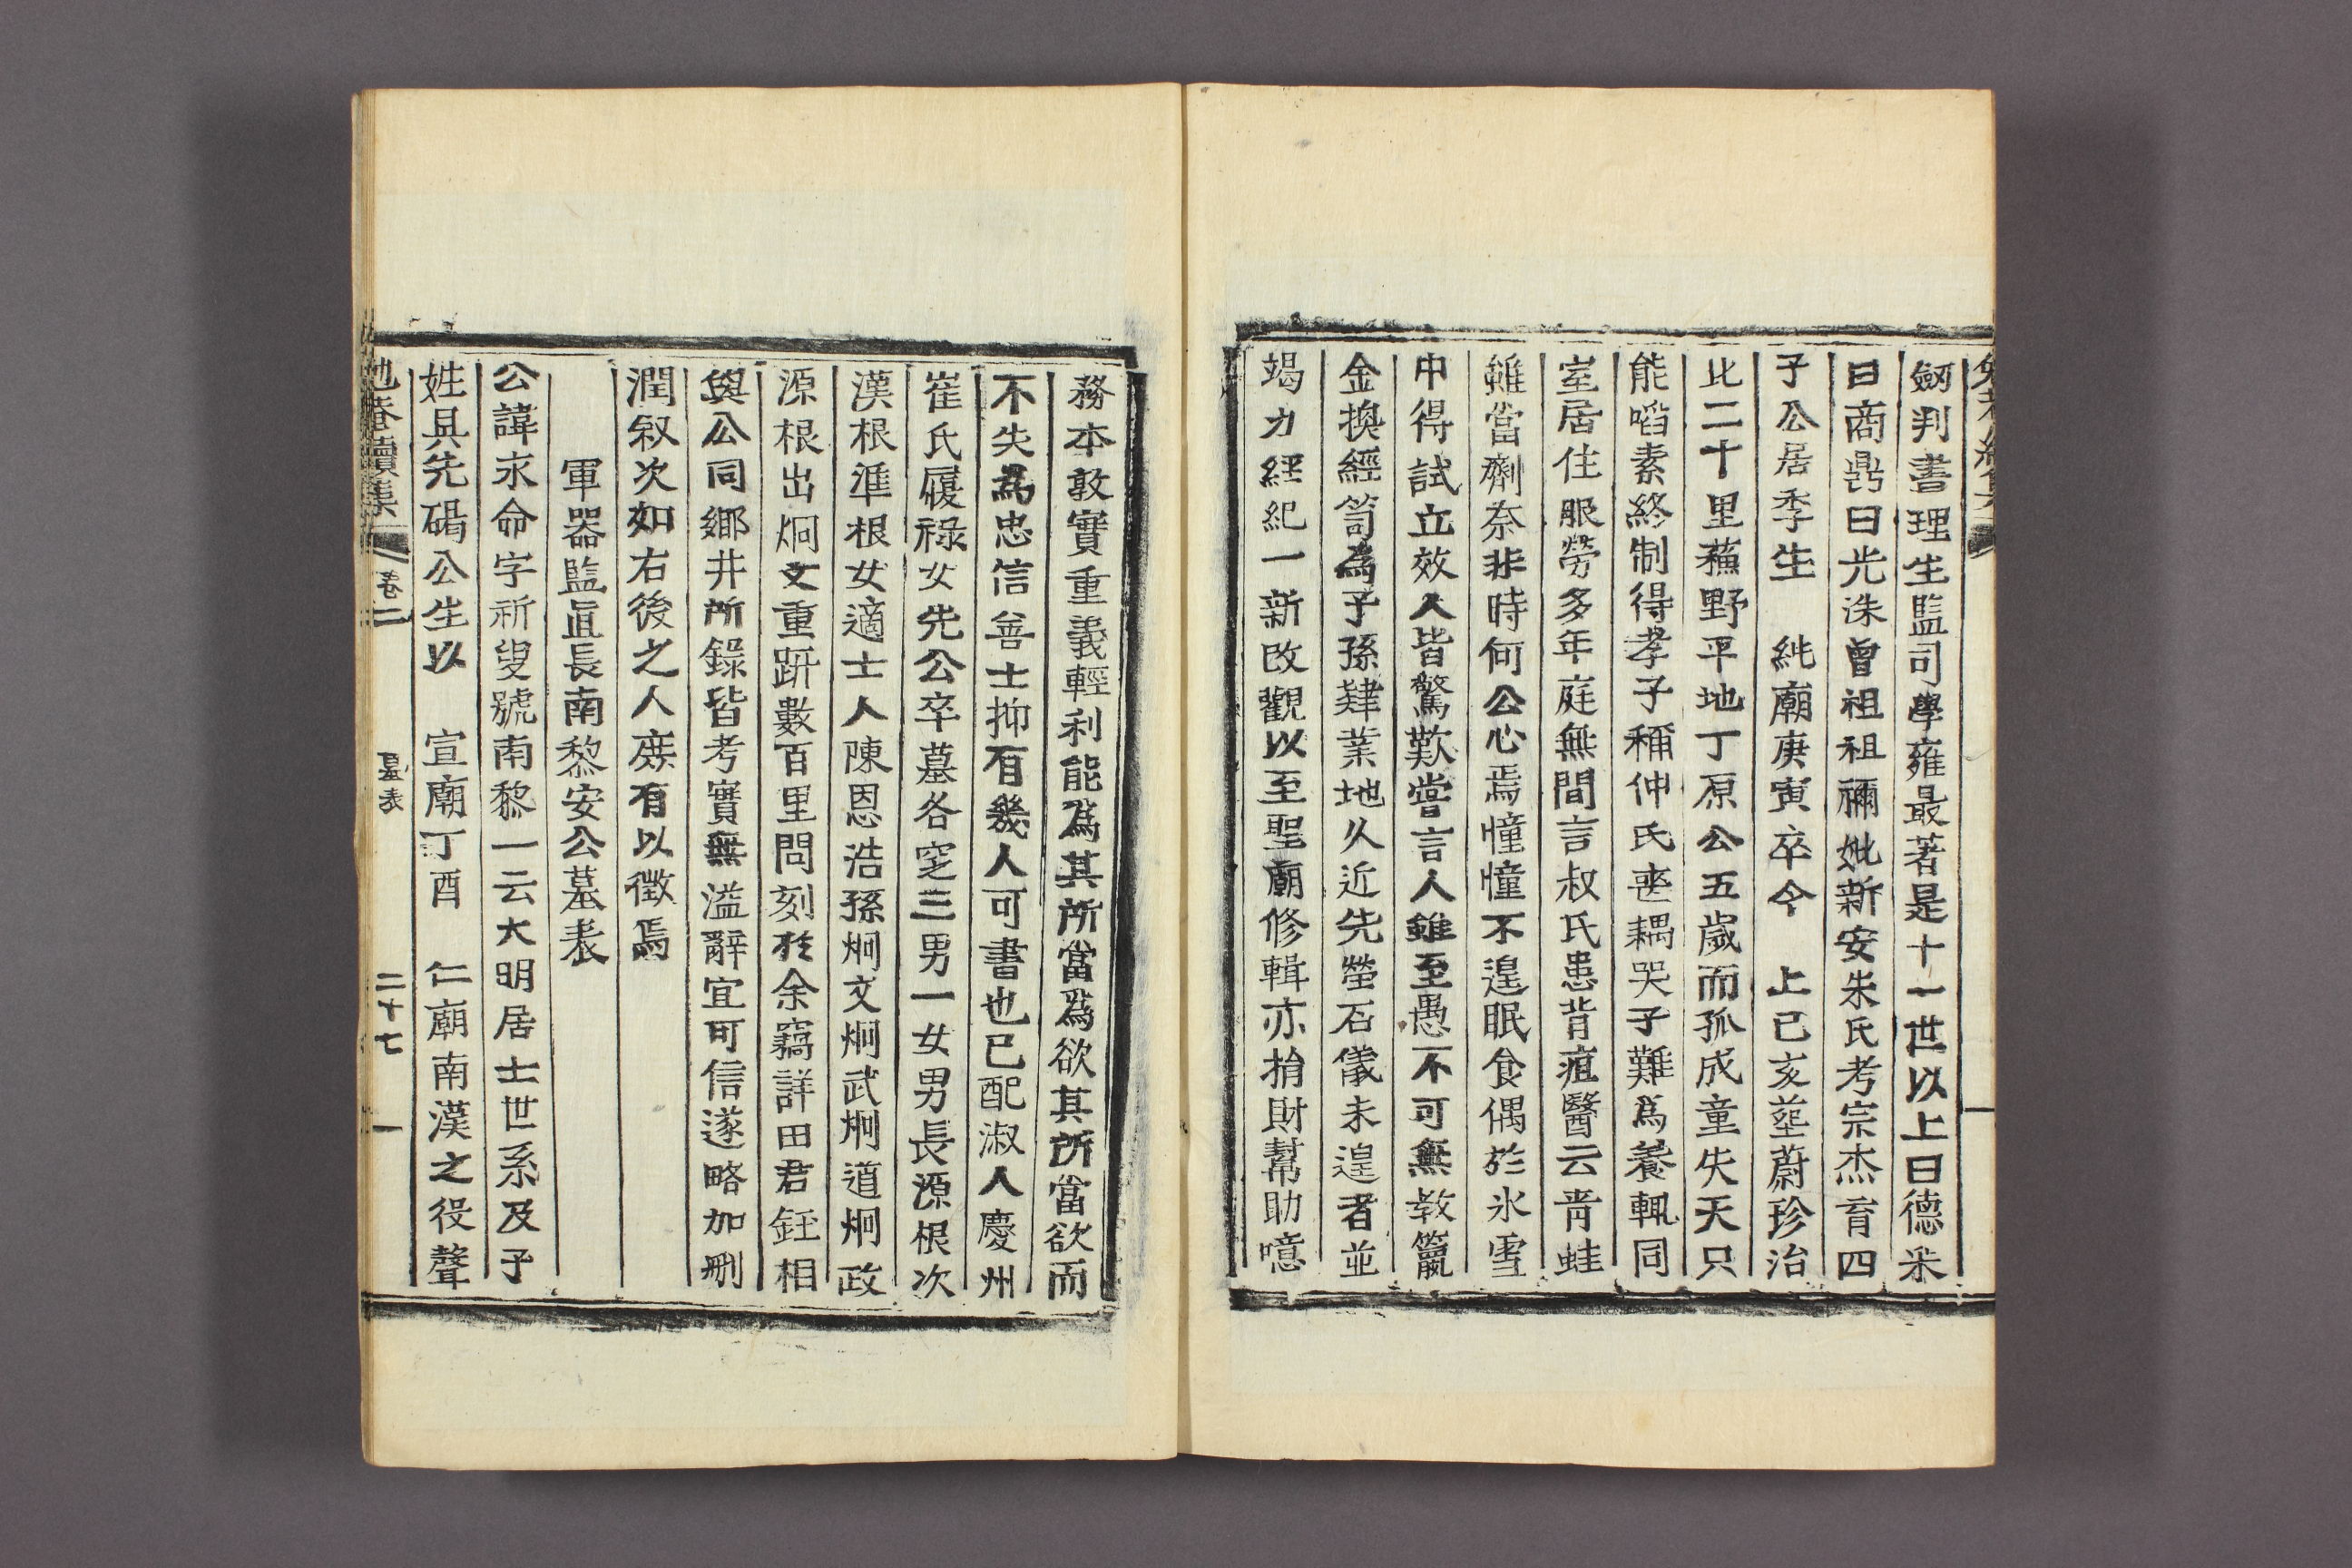 釼判書理生監司學雍最著是十一世以上曰德釆
曰商鼎曰光洙曾祖祖禰妣新安朱氏考宗杰育四
子公居季生 純廟庚寅卒今 上己亥塟蔚珍治
北二十里蘓野平地丁原公五歲而孤成童失天只
能啗素終制得孝子稱仲氏喪耦哭子難爲養輒同
室居住服勞多年庭無間言叔氏患背疽醫云靑蛙
雖當劑奈非時何公心焉憧憧不遑眠食偶於氷雪
中得試立效人皆驚歎嘗言人雖至愚不可無敎籯
金換經笥為子孫肄業地久近先塋石儀未遑者並
竭力經紀一新改觀以至聖廟修輯亦捐財幫助噫
務本敦實重義輕利能爲其所當爲欲其所當欲而
不失爲忠信善士抑有幾人可書也已配淑人慶州
崔氏履祿女先公卒墓各窆三男一女男長源根次
漢根準根女適士人陳恩浩孫炯文炯武炯道炯政
源根出炯文重趼數百里問刻於余竊詳田君鈺相
與公同鄕井所錄皆考實無溢辭宜可信遂略加刪
潤叙次如右後之人庶有以徵焉
軍器監直長南黎安公墓表
公諱永命字祈叟號南黎一云大明居士世系及子
姓具先碣公生以 宣廟丁酉 仁廟南漢之役聲
卷二 墓表 二十七